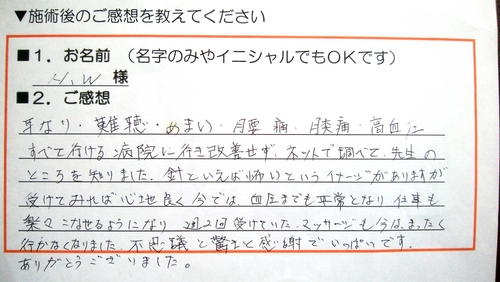 ▼施術後のご感想を教えてください
■1．お名前　（名字のみやイニシャルでもOKです）
H.W 様
■2．ご感想
耳なり・難聴・めまい・腰痛・膝痛・高血圧
すべて行ける病院に行き改善せず、ネットで調べて、先生の
ところを知りました。針といえば怖いというイメージがありますが
受けてみれば心地良く今では、血圧までも平常となり仕事も
楽々こなせるようになり 週2回受けていた、マッサージも今は、まったく
行かなくなりました。不思議と驚きと感謝でいっぱいです。
ありがとうございました。